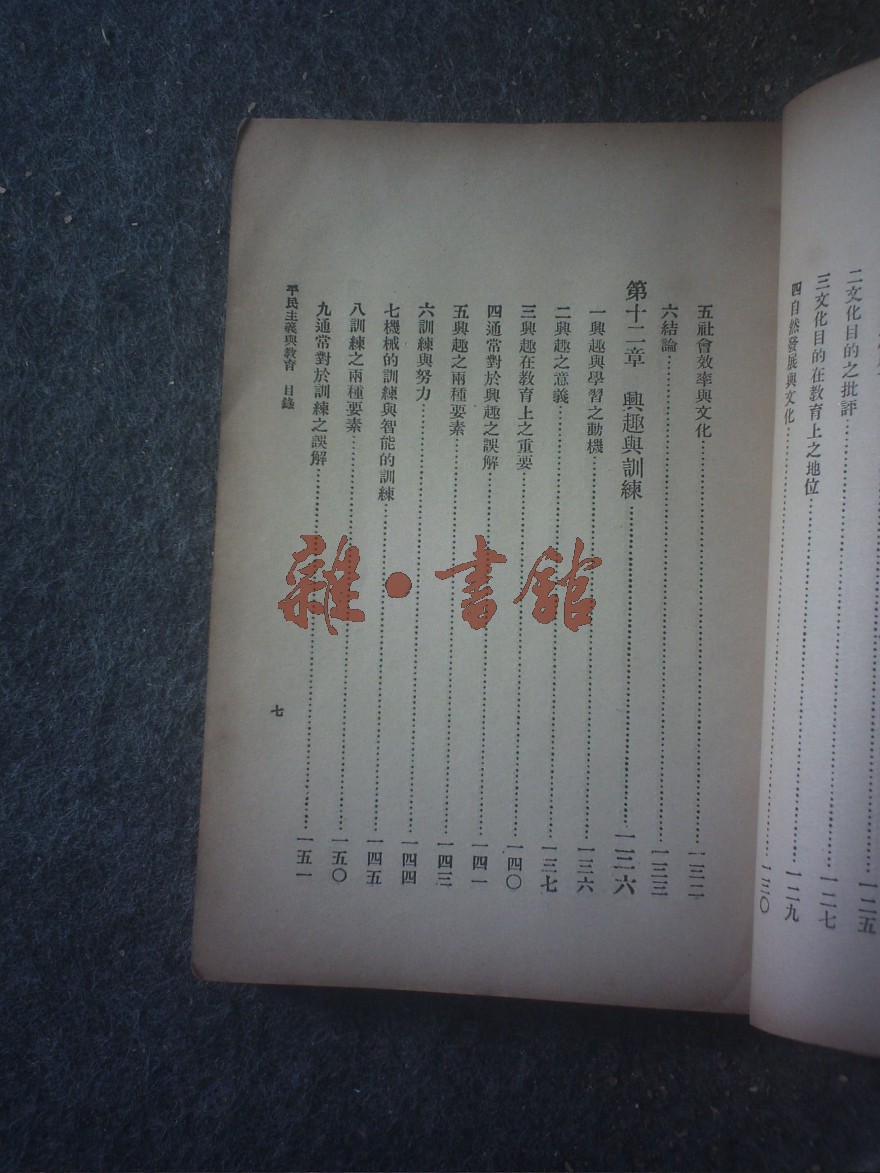 二文化目的之批評……一二五
三文化目的在教育上之地位……一二七
四自然發展與文化……一二九
一三〇
五社會效率與文化……一三二
六結論……一三三
第十二章 興趣與訓練……一三六
一興趣與學習之動機……一三六
二興趣之意義……一三七
三興趣在教育上之重要……一四〇
四通常對於興趣之誤解……一四一
五興趣之兩種要素……一四三
六訓練與努力……一四四
七機械的訓練與智能的訓練……一四五
八訓練之兩種要素……一五〇
九通常對於訓練之誤解……一五一
平民主義與教育 目錄
七
雜·書館